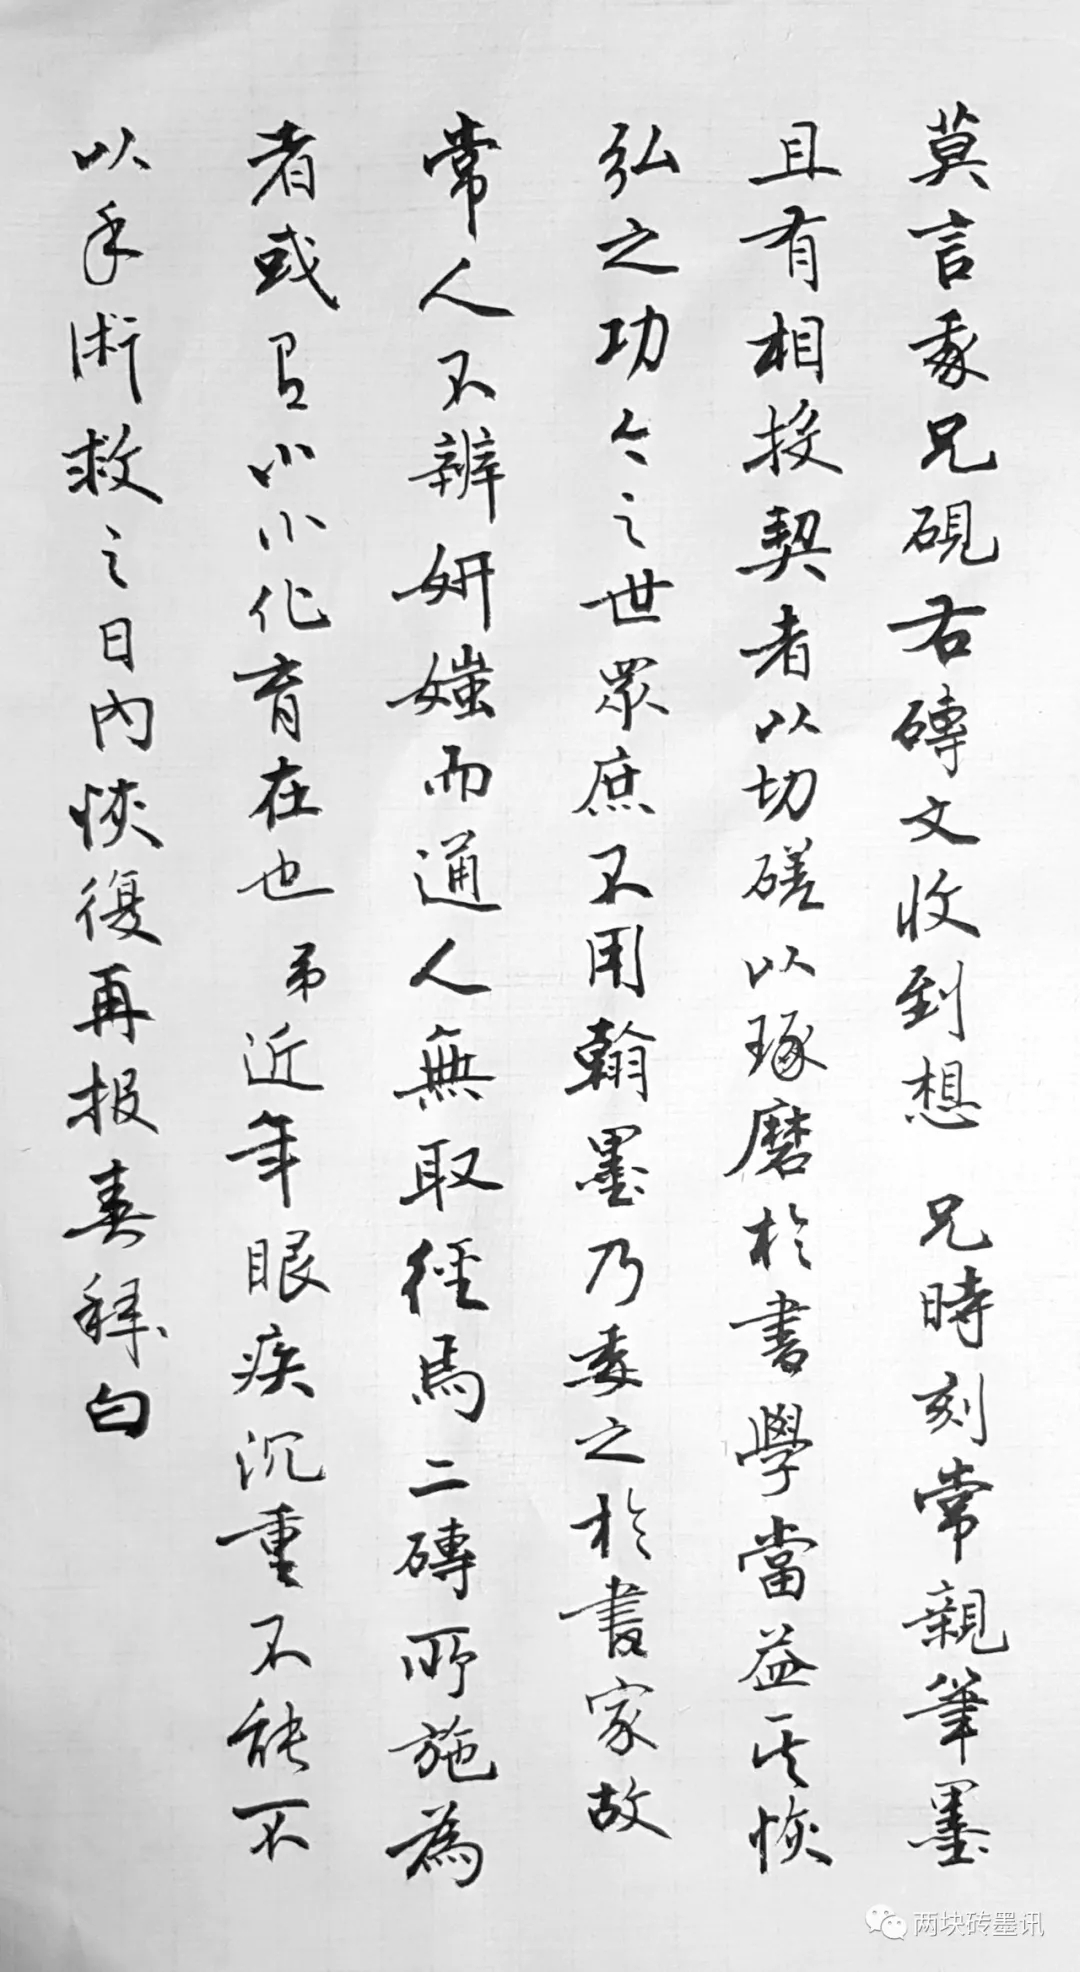 莫言家兄硯右磚文收到想 兄時刻常親筆墨
且有相投契者以切磋以琢磨於書學當益其恢
弘之功今之世眾庶不用翰墨乃委之於書家故
常人不辨妍媸而通人無取徑焉二磚所施為
者或有小小化育在也弟近年眼疾沉重不能不
以手術救之日內恢復再报 拜白
两块砖墨讯